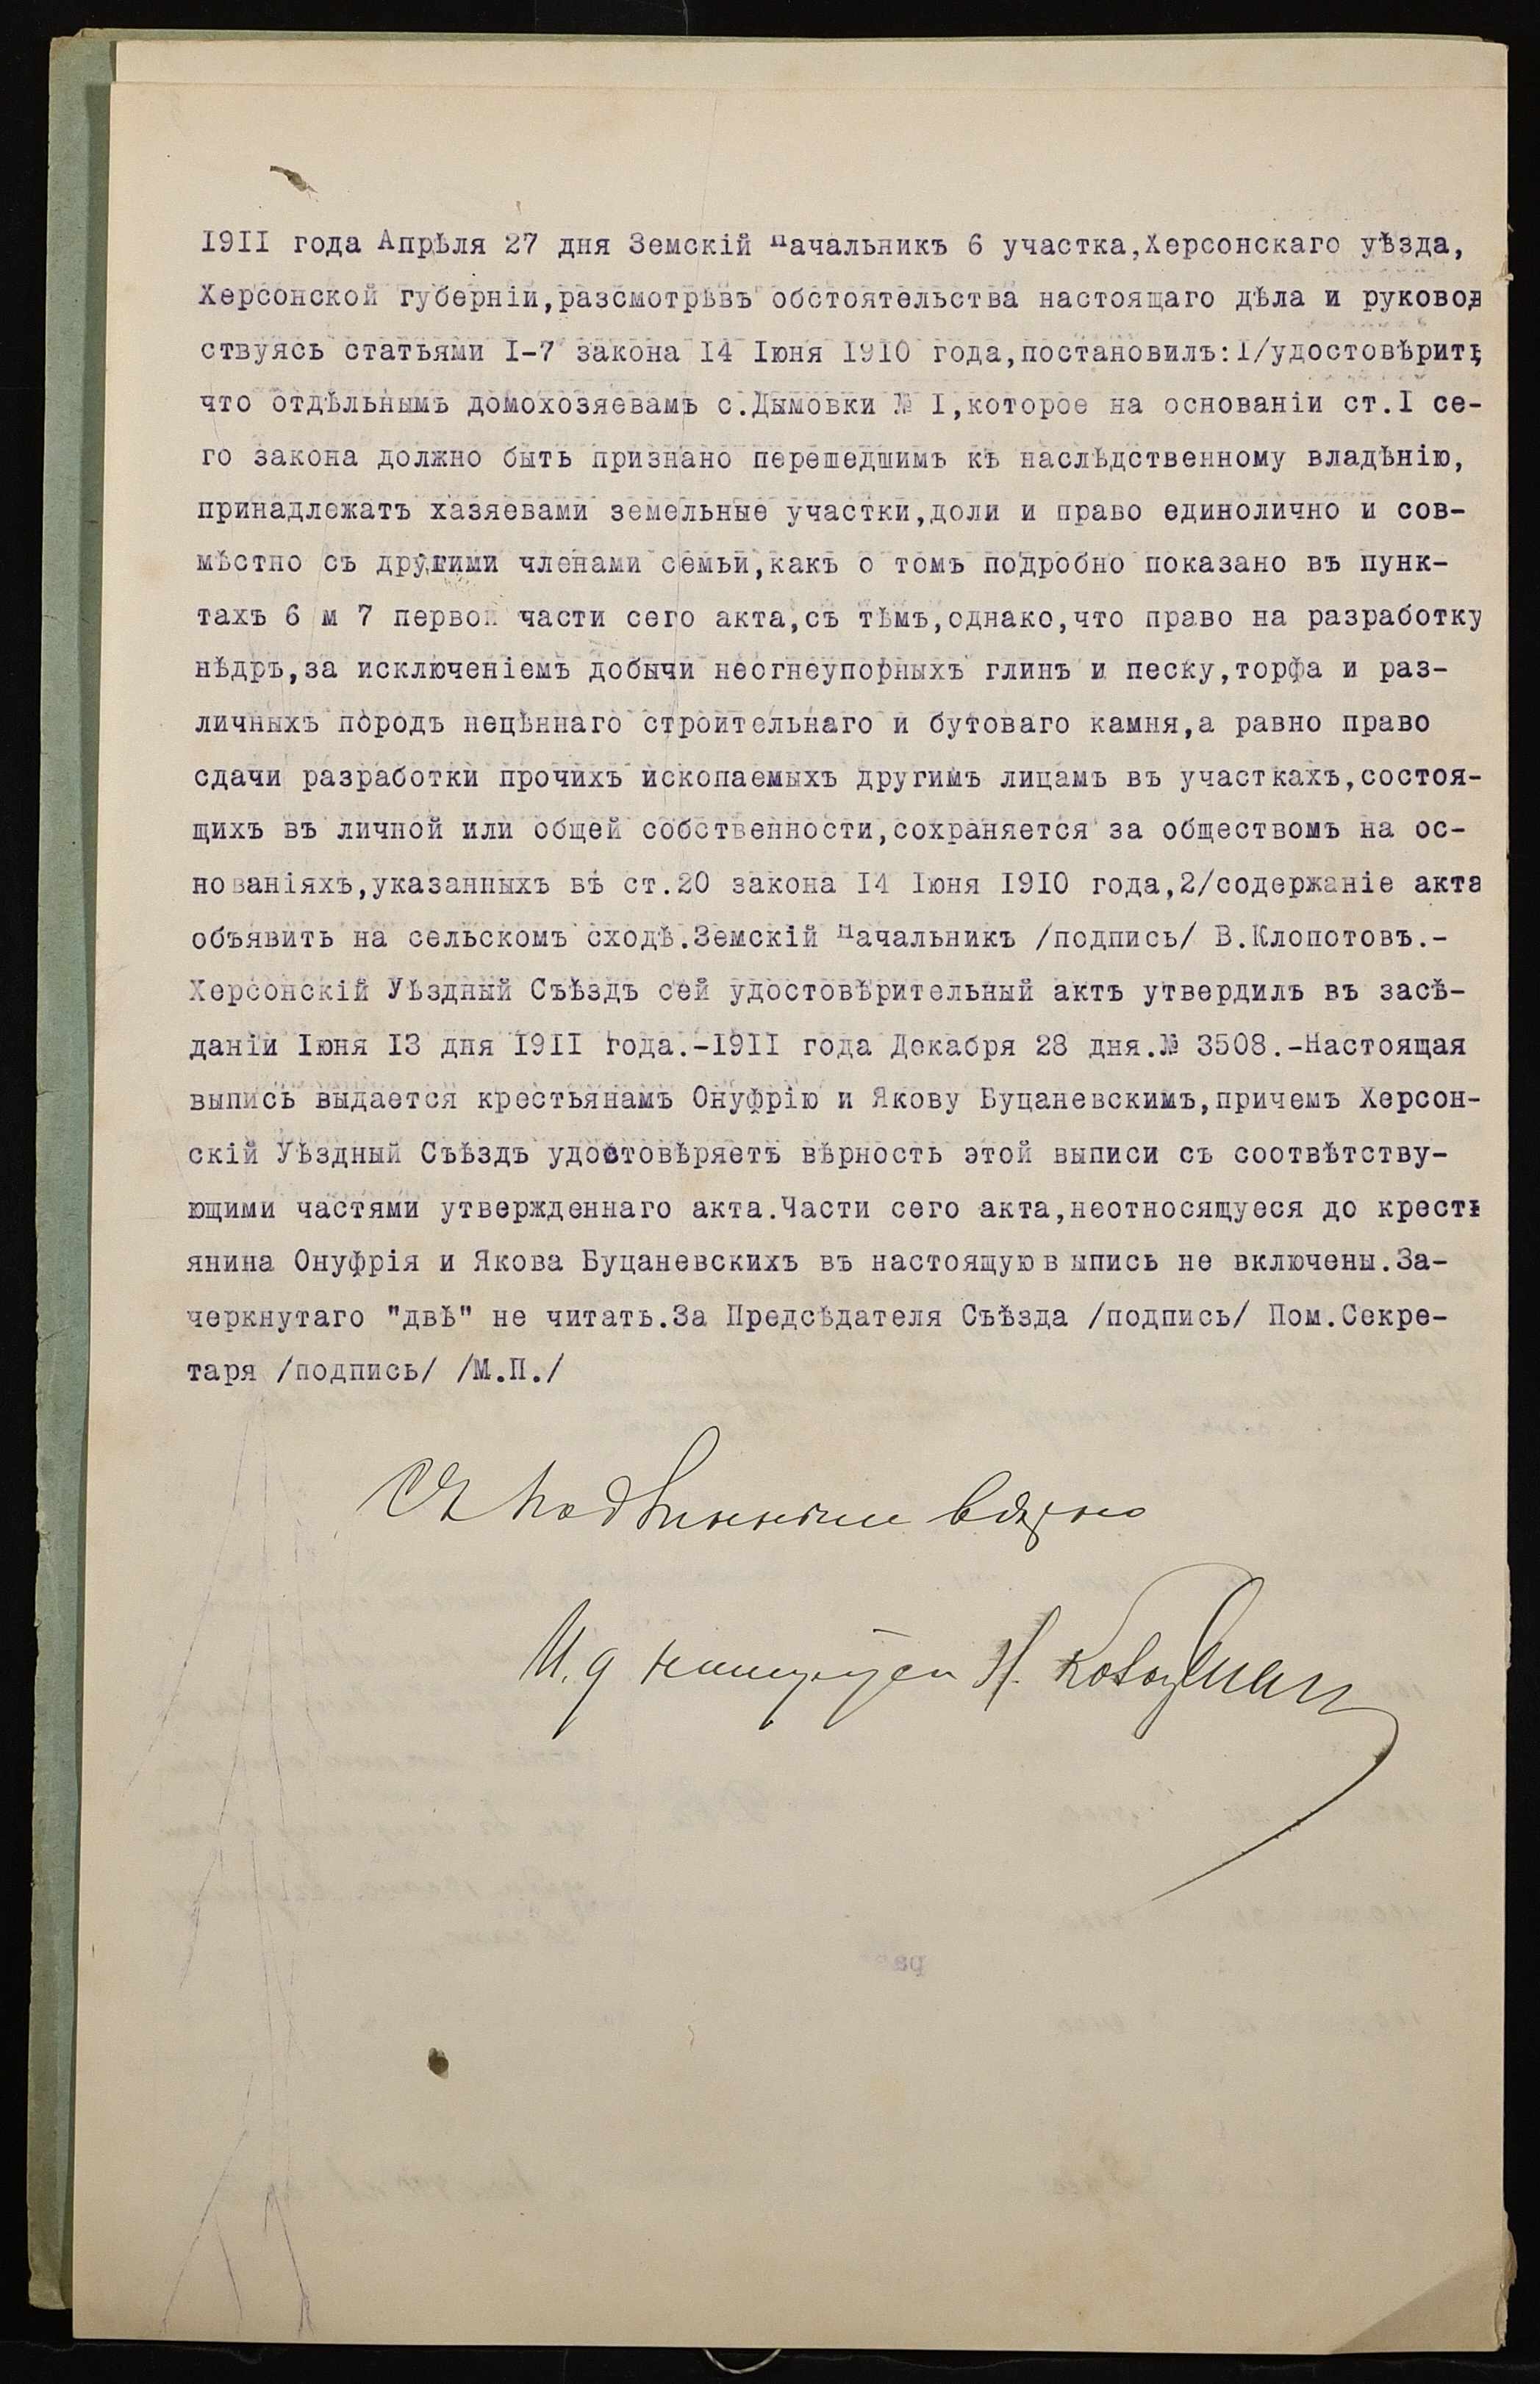 1911 года Апрѣля 27 дня Земскій Начальникъ 6 участка,Херсонскаго уѣзда,
Херсонской губерніи,разсмотрѣвъ обстоятельства настоящаго дѣла и руковод
ствуясь статьями I-7 закона 14 Іюня 1910 года,постановилъ:1/удостовѣрить,
что отдѣльнымъ домохозяевамъ с.Дымовки № I,которое на основаніи ст.I се-
го закона должно быть признано перешедшимъ къ наслѣдственному владѣнію,
принадлежатъ хазяевами земельные участки,доли и право единолично и сов-
мѣстно съ другими членами семьи,какъ о томъ подробно показано въ пунк-
тахъ 6 м 7 первой части сего акта,съ тѣмъ,однако,что право на разработку
нѣдръ,за исключеніемъ добычи неогнеупорныхъ глинъ и песку,торфа и раз-
личныхъ породъ нецѣннаго строительнаго и бутоваго камня,а равно право
сдачи разработки прочихъ ископаемыхъ другимъ лицамъ въ участкахъ,состоя-
щихъ въ личной или общей собственности,сохраняется за обществомъ на ос-
нованіяхъ,указанныхъ въ ст.20 закона 14 Іюня 1910 года,2/содержаніе акта
объявить на сельскомъ сходѣ.Земскій Начальникъ /подпись/ В.Клопотовъ.-
Херсонскій Уѣздный Съѣздъ сей удостовѣрительный актъ утвердилъ въ засѣ-
даніи Іюня 13 дня 1911 года.-1911 года Декабря 28 дня.№ 3508.-Настоящая
выпись выдается крестьянамъ Онуфрію и Якову Буцаневскимъ,причемъ Херсон-
скій Уѣздный Съѣздъ удостовѣряетъ вѣрность этой выписи съ соотвѣтству-
ющими частями утвержденнаго акта.Части сего акта,неотносящуеся до кресть
янина Онуфрія и Якова Буцаневскихъ въ настоящую выпись не включены.За-
черкнутаго "двѣ" не читать.За Предсѣдателя Съѣзда /подпись/ Пом.Секре-
таря /подпись/ /М.П./
Съ подлиннымъ вѣрно
И.д. Н.